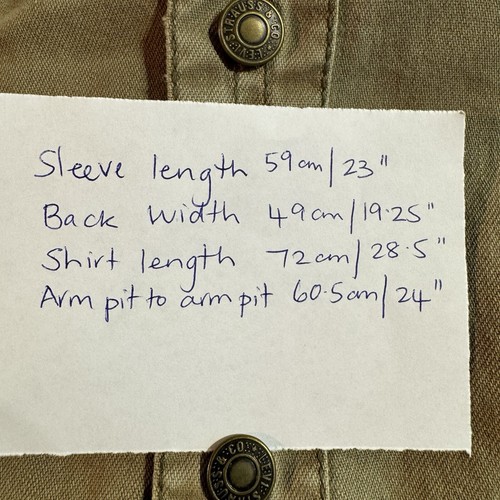 STRAUSS & CO
LEVI
Sleeve length 59cm/23"
Back width 49cm/19.25"
Shirt length 72cm/28.5"
Arm pit to arm pit 60.5cm/24"
& CO LEVI